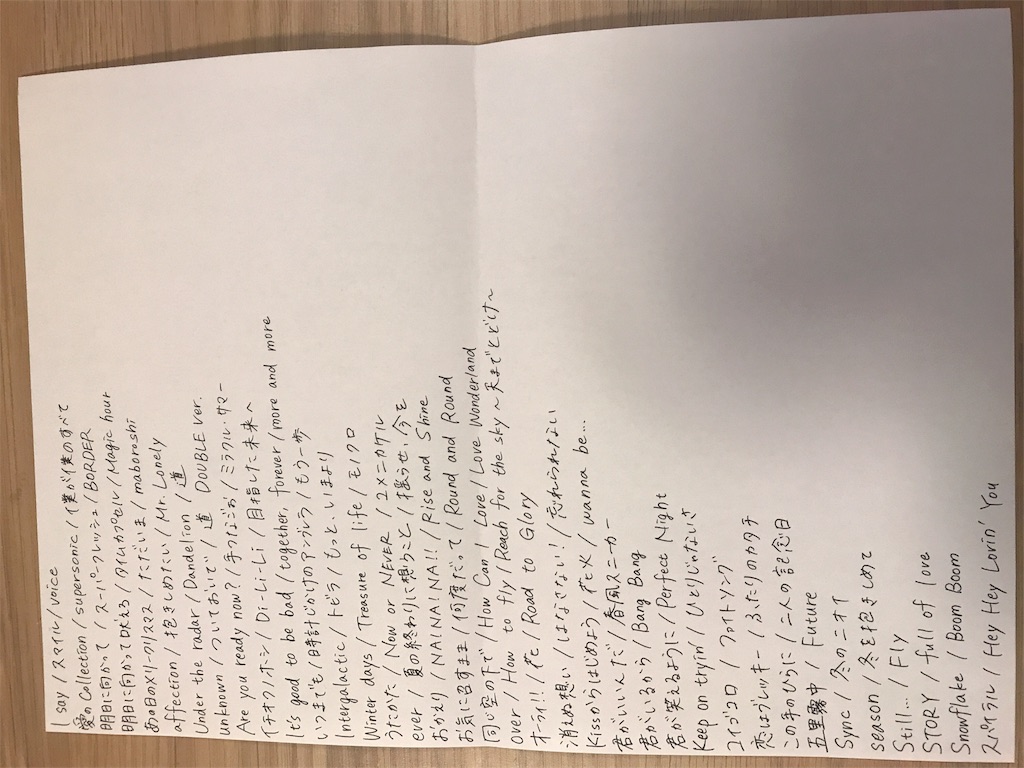 I say / スマイル / voice / 僕が僕のすべて
愛のCollection / supersonic / 僕が僕のすべて
明日に向かって / スーパーフレッシュ / BORDER
明日に向かって吠えろ / タイムカプセル / Magic hour
あの日のメリークリスマス / ただいま / maboroshi
affection / 抱きしめたい / Mr. Lonely
Under the radar / Dandelion / 道
unknown / ついておいで / 道 DOUBLE ver.
Are you ready now? / 手つなごぉ / ミラクルサマー
イチオクノホシ / Di-Li-Li / 目指した未来へ
It's good to be bad / together, forever / more and more
いつまでも / 時計じかけのアンブレラ / もう一歩
Intergalactic / トビラ / もっと、いまより
Winter days / Treasure of life / モノクロ
うたかた / Now or NEVER / 2×ニカケル
ever / 夏の終わりに想うこと / 揺らせ、今を
おかえり / NA!NA!NA!! / Rise and Shine
お気に召すまま / 何度だって / Round and Round
同じ空の下で / How Can I Love / Love Wonderland
over / How to fly / Reach for the sky〜天までとどけ〜
オーライ!! / 花 / Road to Glory
消せぬ想い / はなさない! / 忘れられない
Kissからはじめよう / 花火 / wanna be...
君がいいんだ / 春風スニーカー
君がいるから / Bang Bang
君が笑えるように / Perfect Night
Keep on tryin' / ひとりじゃないさ
コイゴコロ / ファイトソング
恋はブレッキー / ふたりのカタチ
この手のひらに / 二人の記念日
五里霧中 / Future
Sync / 冬のニオイ
season / 冬を抱きしめて
Still... / Fly
STORY / full of love
Snowflake / Boom Boom
スパイラル / Hey Hey Lovin' You